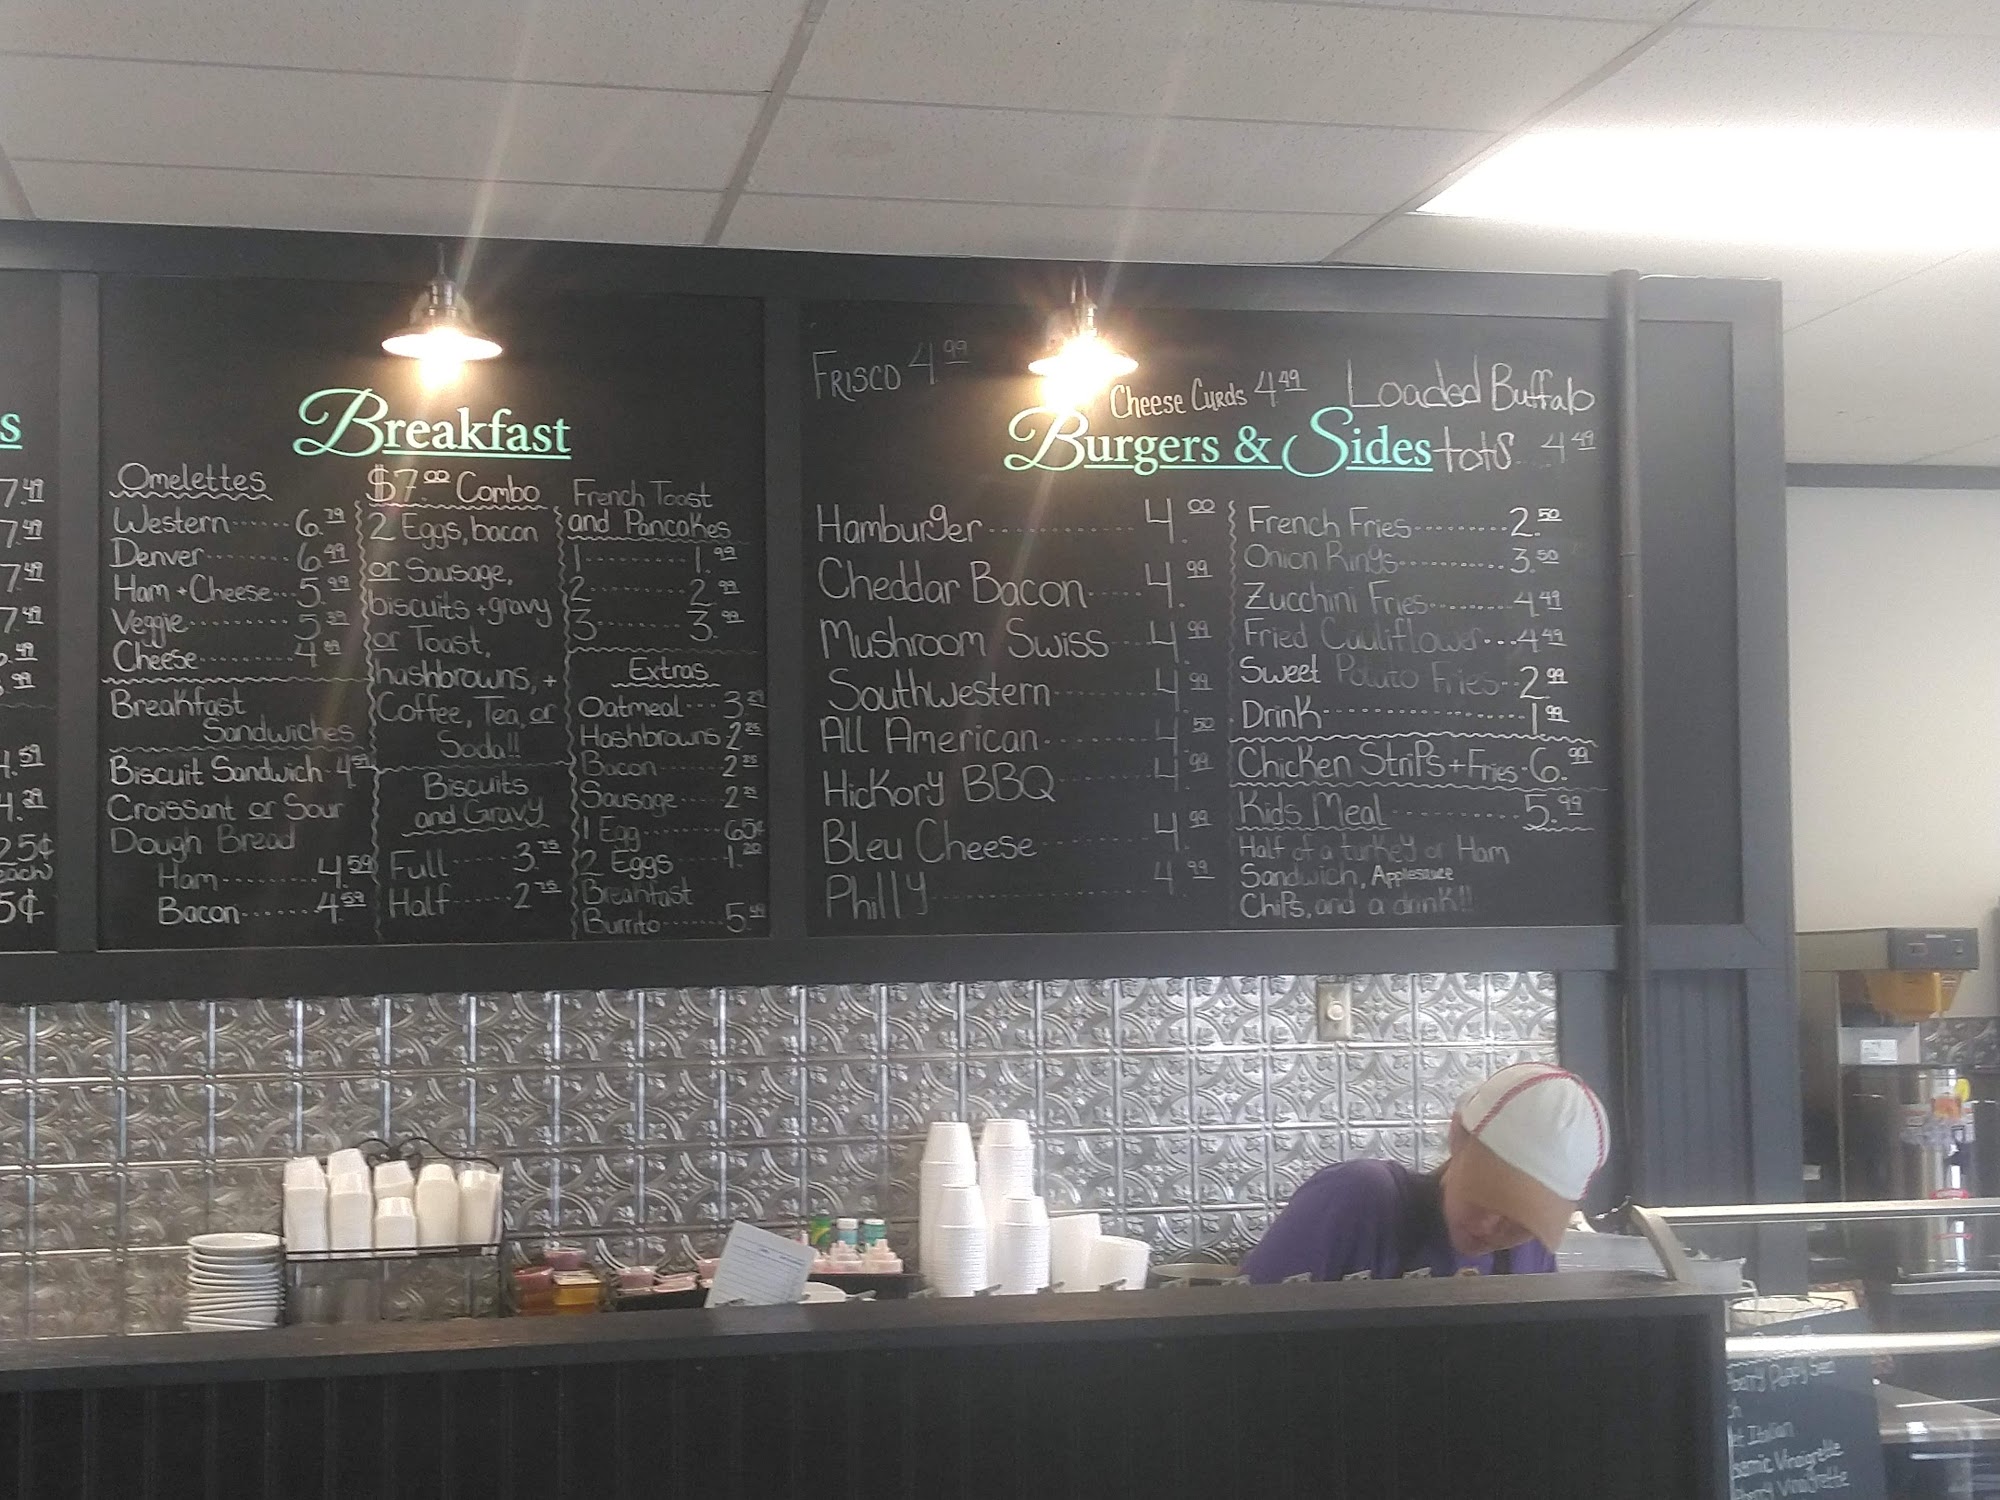 s
7.49
7.49
7.49
7.49
.49
.99
4.59
4.29
25¢
each
5¢
Breakfast
Omelettes
Western 6.79
Denver 6.49
Ham + Cheese 5.99
Veggie 5.39
Cheese 4.89
Breakfast
Sandwiches
Biscuit Sandwich 4.59
Croissant or Sour
Dough Bread
Ham 4.59
Bacon 4.59
$7.00 Combo
2 Eggs, bacon
or Sausage,
biscuits + gravy
or Toast,
hashbrowns, +
Coffee, Tea, or
Soda!!
Biscuits
and Gravy
Full 3.75
Half 2.75
French Toast
and Pancakes
1 1.99
2 2.99
3 3.99
Extras
Oatmeal 3.29
Hashbrowns 2.25
Bacon 2.25
Sausage 2.25
1 Egg 65¢
2 Eggs 1.20
Breakfast
Burrito 5.49
Frisco 4.99
Cheese Curds 4.49
Loaded Buffalo
tots 4.49
Burgers & Sides
Hamburger 4.00
Cheddar Bacon 4.99
Mushroom Swiss 4.99
Southwestern 4.99
All American 4.50
Hickory BBQ 4.99
Bleu Cheese 4.99
Philly 4.99
French Fries 2.50
Onion Rings 3.50
Zucchini Fries 4.49
Fried Cauliflower 4.49
Sweet Potato Fries 2.99
Drink 1.99
Chicken Strips + Fries 6.99
Kids Meal 5.99
Half of a turkey or Ham
Sandwich, Applesauce
Chips, and a drink!!
Poppy Seed
Italian
Vinaigrette
Vinaigrette